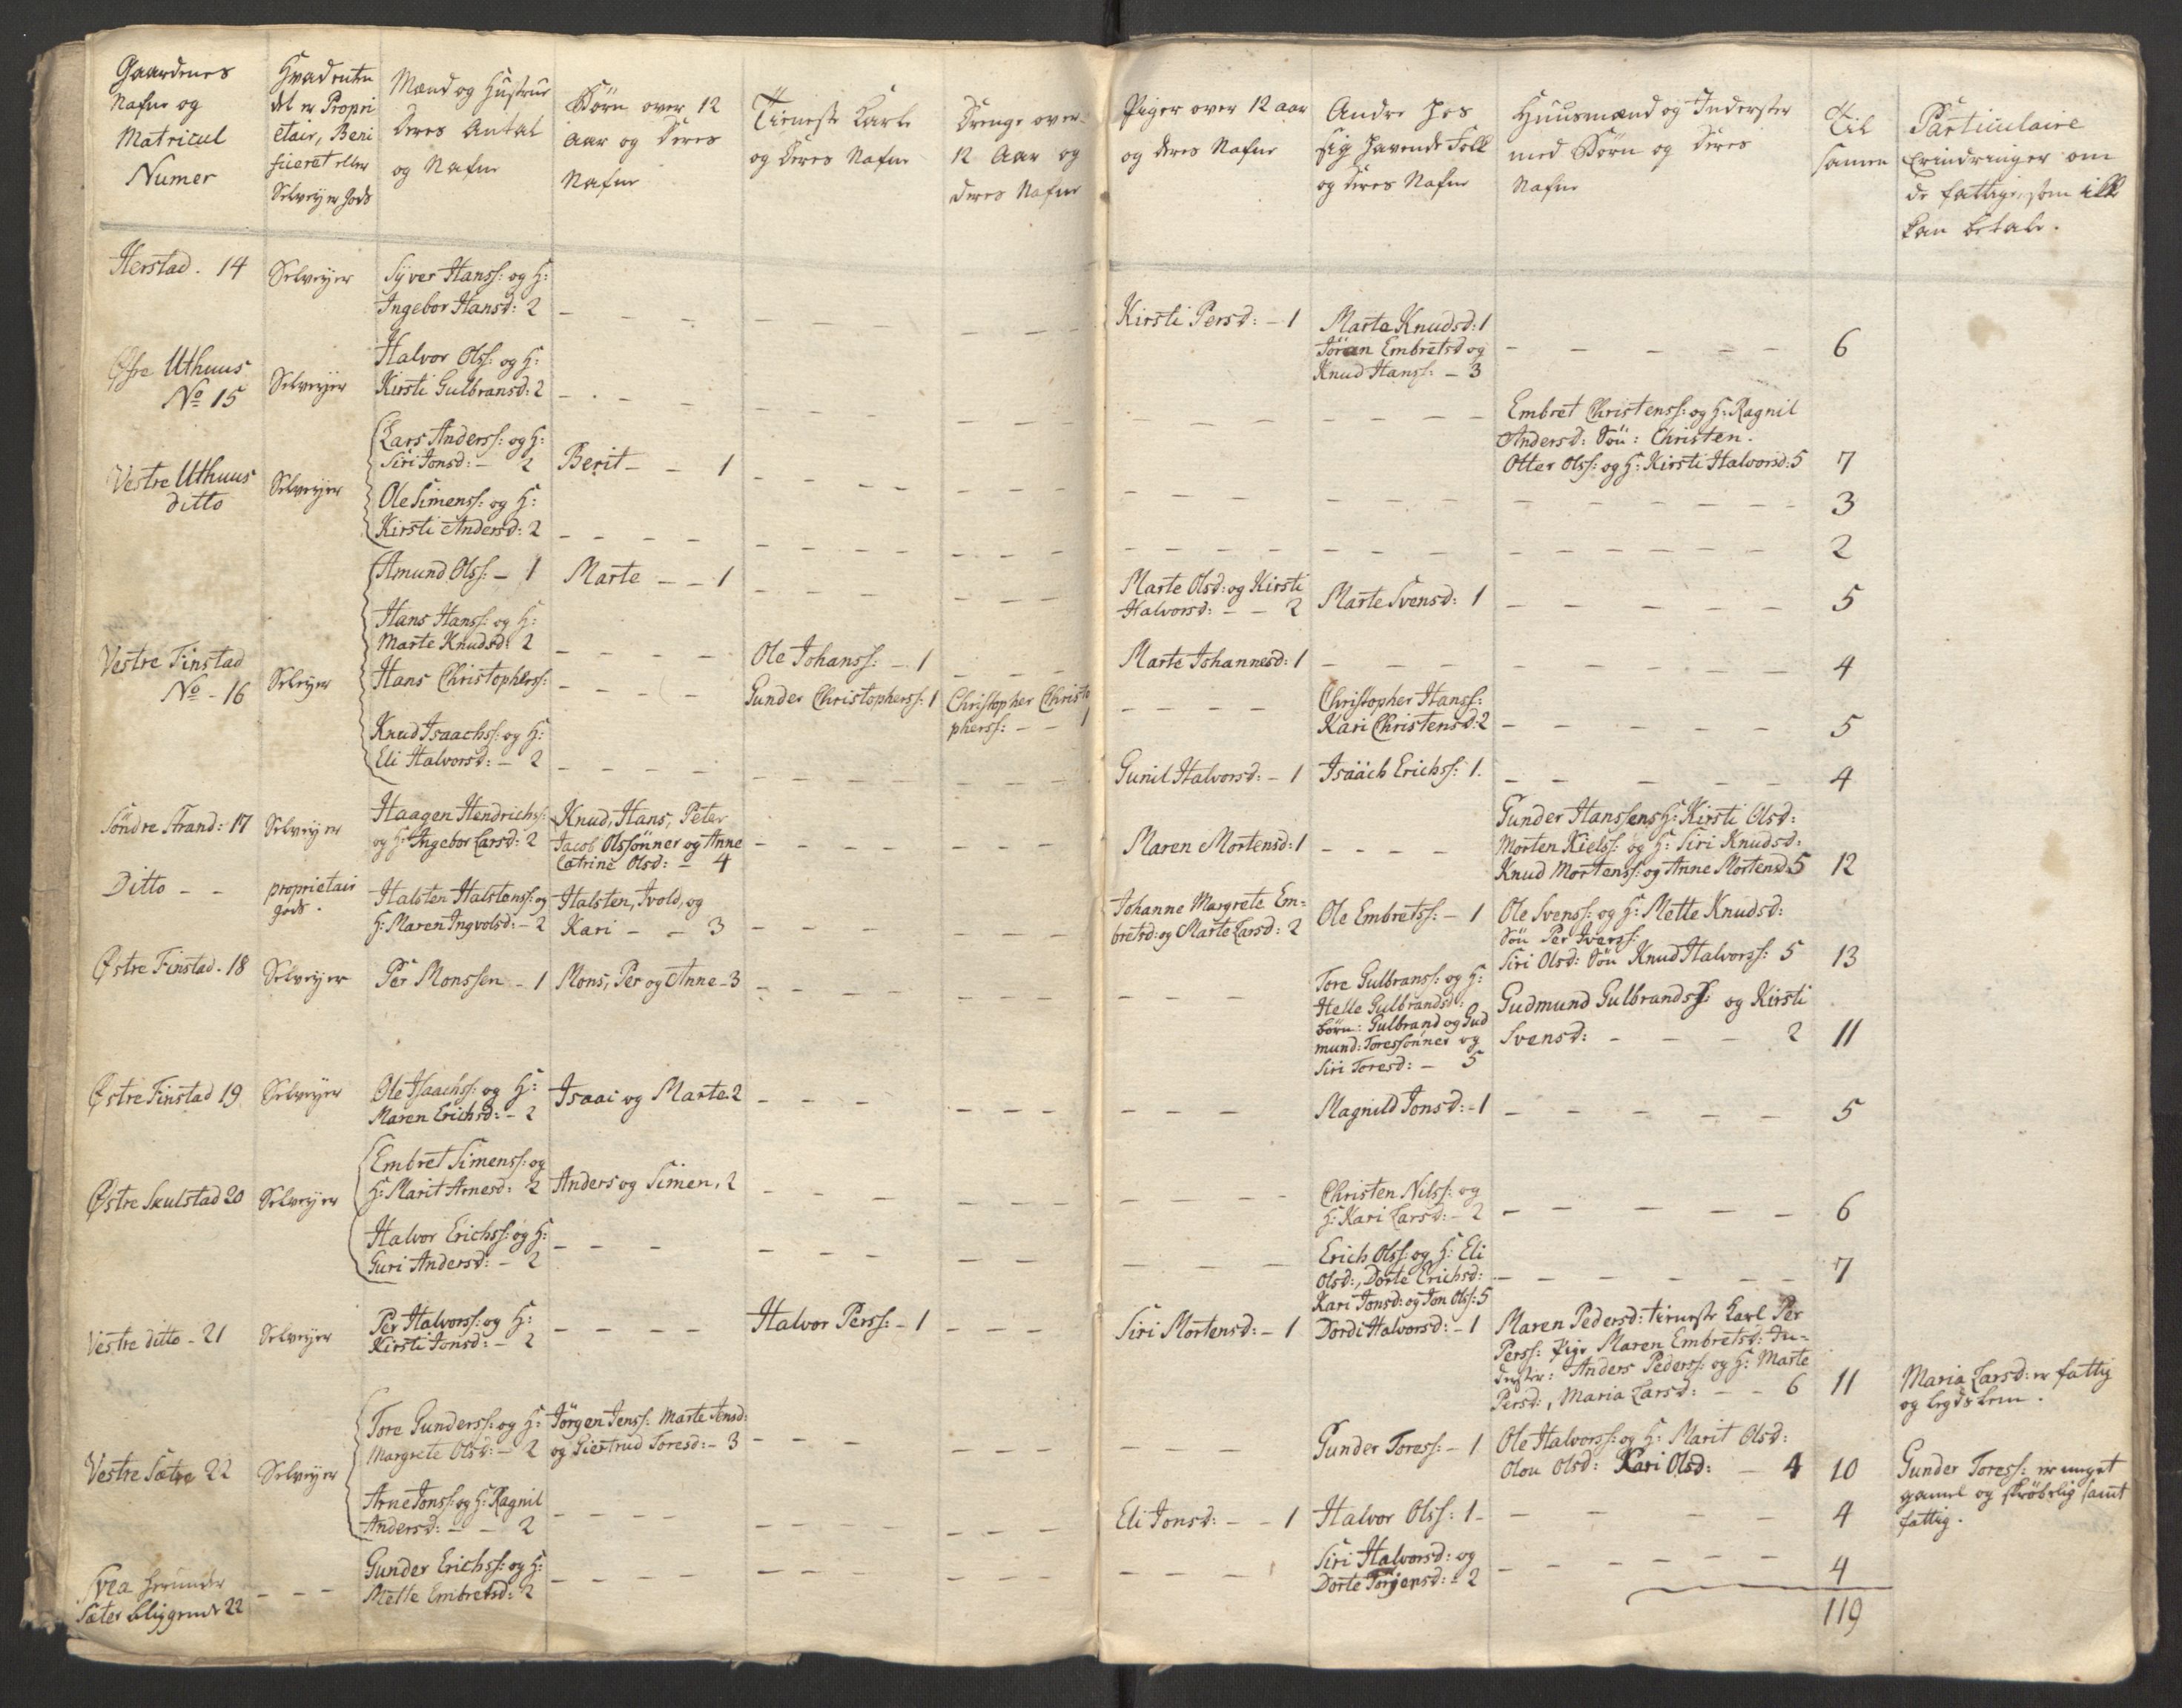 Gaardenes
Nafne og
Matricul
Numer
Hvad enten
det er Propri
etair, Beni
ficeret eller
Selveyer Gods
Mænd og Hustruer
Deres Antal
og Nafne
Börn over 12
Aar og Deres
Nafne
Tieneste Karle
og Deres Nafne
Drenge over
12 Aar og
deres Nafne
Piger over 12 aar
og deres Nafne
Andre hos
sig havende Folk
og deres Nafne
Huusmænd og Inderster
med Börn og Deres
Nafne
Til
samen
Particulaire
Erindringer om
de fattige, som ikke
kan betale.
Herstad. 14
Selveyer
Syver Hanss: og H:
Ingebor Hansd: 2
Kirsti Persd: - 1
Marte Knudsd: 1
Jöran Embretsd og
Knud Hanss: - 3
6
Øfre Uthuus
No 15
Selveyer
Halvor Olss: og H:
Kirsti Gulbransd: 2
Embret Christenss: og H: Ragnil
Andersd: Sön: Christen.
Otter Olss: og H: Kirsti Halvorsd: 5
7
Vestre Uthuus
ditto
Selveyer
Lars Anderss: og H:
Siri Jonsd: - 2
Berit - - 1
3
Ole Simenss: og H:
Kirsti Andersd: 2
2
Amund Olss: - 1
Marte - - 1
Marte Olsd: og Kirsti
Halvorsd: - - 2
Marte Svensd: 1
5
Hans Hanss: og H:
Marte Knudsd: 2
Ole Johanss: - 1
Marte Johannesd: 1
4
Vestre Finstad
No - 16
Selveyer
Hans Christophers:
Gunder Christopherss: 1
Christopher Christo
pherss: - - 1
Christopher Hanss:
Kari Christensd: 2
5
Knud Isaachss: og H:
Eli Halvorsd: - 2
Gunil Halvorsd: - 1
Isaach Erichss: 1.
4
Söndre Strand: 17
Selveyer
Haagen Hendrichss:
og H: Ingebor Larsd: 2
Knud, Hans, Peter
Jacob Olssönner og Anne
Catrine Olsd: - 4
Maren Mortensd: 1
Gunder Hanssens H: Kirsti Olsd:
Morten Kielss: og H: Siri Knudsd:
Knud Mortenss: og Anne Mortensd: 5
12
Ditto - -
proprietair
gods.
Halsten Halstenss: og
H: Maren Ingvolsd: - 2
Halsten, Ivold, og
Kari - - 3
Johanne Margrete Em-
bretsd: og Marte Larsd: 2
Ole Embretss: - 1
Ole Svenss: og H: Mette Knudsd:
Sön Per Iverss:
Siri Olsd: Sön Knud Halvorss: 5
13
Østre Finstad. 18
Selveyer
Per Monssen - 1
Mons, Per og Anne - 3
Tore Gulbranss: og H:
Helle Gulbrandsd:
börn: Gulbrand og Gud
mund: Toressönner og
Siri Toresd: - 5
Gudmund Gulbrandss: og Kirsti
Svensd: - - - 2
11
Østre Finstad 19
Selveyer
Ole Isaachss: og H:
Maren Erichsd: - 2
Isaac og Marte. 2
Magnild Jonsd: - 1
5
Østre Skulstad 20
Selveyer
Embret Simenss: og
H: Marit Arnesd: 2
Anders og Simen, 2
Christen Nilss: og
H: Kari Larsd: - 2
6
Halvor Erichss: og H:
Guri Andersd: - 2
Erich Olss: og H: Eli
Olsd:, Dorte Erichsd:
Kari Jonsd: og Jon Olss: 5
7
Vestre ditto - 21
Selveyer
Per Halvorss: og H:
Kirsti Jonsd: - 2
Halvor Perss: - 1
Siri Mortensd: - 1
Dordi Halvorsd: - 1
Maren Pedersd: tieneste Karl Per
Perss: Pige Maren Embretsd: In-
derster: Anders Pederss: og H: Marte
Persd:, Maria Larsd: - - 6
11
Maria Larsd: er fattig
og legdslem.
Vestre Sætre 22
Selveyer
Tore Gunderss: og H:
Margrete Olsd: - 2
Jörgen Jenss: Marte Jensd:
og Giertrud Toresd: - 3
Gunder Toress: - 1
Ole Halvorss: og H: Marit Olsd:
Olou Olsd: Kari Olsd: - 4
10
Gunder Toress: er meget
gamel og skröbelig samt
fattig.
Arne Jonss: og H: Ragnil
Andersd: - - 2
Eli Jonsd: - - 1
Halvor Olss: 1 -
4
Svea herunder
Sæter beliggende 22
Gunder Erichss: og H:
Mette Embretsd: 2
Siri Halvorsd: og
Dorte Torgersd: - 2
4
119